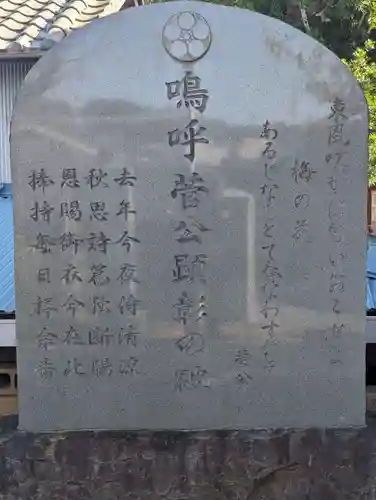 東風吹かばにほいおこせよ
梅の花
あるじなしとて春なわすれそ
菅公
嗚呼菅公顕彰の碑
去年今夜侍清涼
秋思詩篇独断腸
恩賜御衣今在此
捧持毎日拝余香